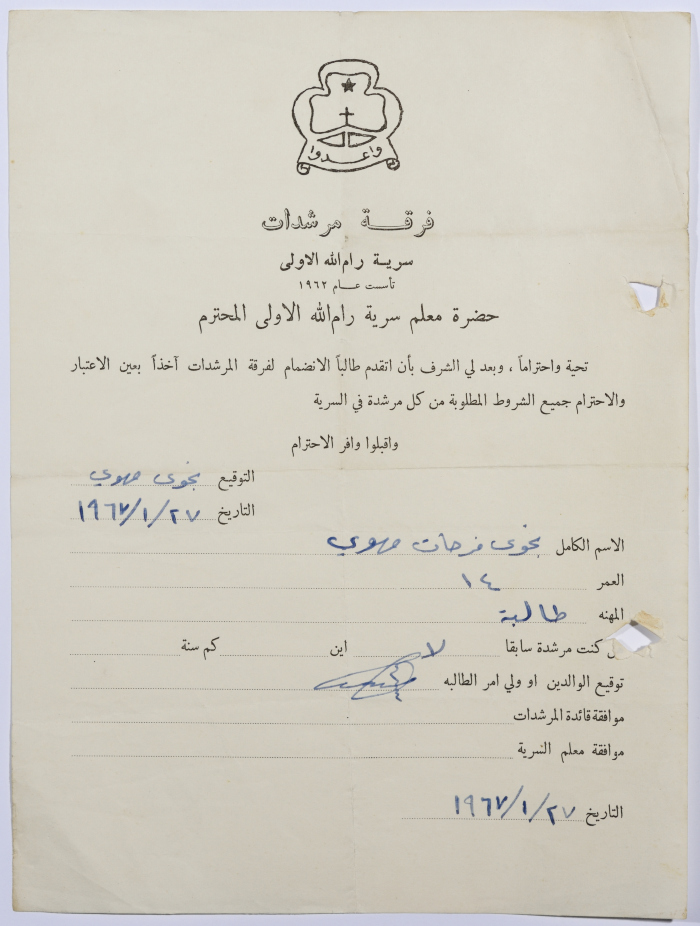 واعدوا
فرقة مرشدات
سرية رام الله الاولى
تأسست عام ١٩٦٢
حضرة معلم سرية رام الله الاولى المحترم
تحية واحتراماً ، وبعد لي الشرف بأن اتقدم طالباً الانضمام لفرقة المرشدات آخذاً بعين الاعتبار
والاحترام جميع الشروط المطلوبة من كل مرشدة في السرية
واقبلوا وافر الاحترام
التوقيع نجوى مهوي
التاريخ ١٩٦٧/١/٢٧
الاسم الكامل نجوى فرحات مهوي
العمر ١٤
المهنه طالبة
كنت مرشدة سابقا لا اين كم سنة
توقيع الوالدين او ولي امر الطالبه
موافقة قائدة المرشدات
موافقة معلم السرية
التاريخ ١٩٦٧/١/٢٧